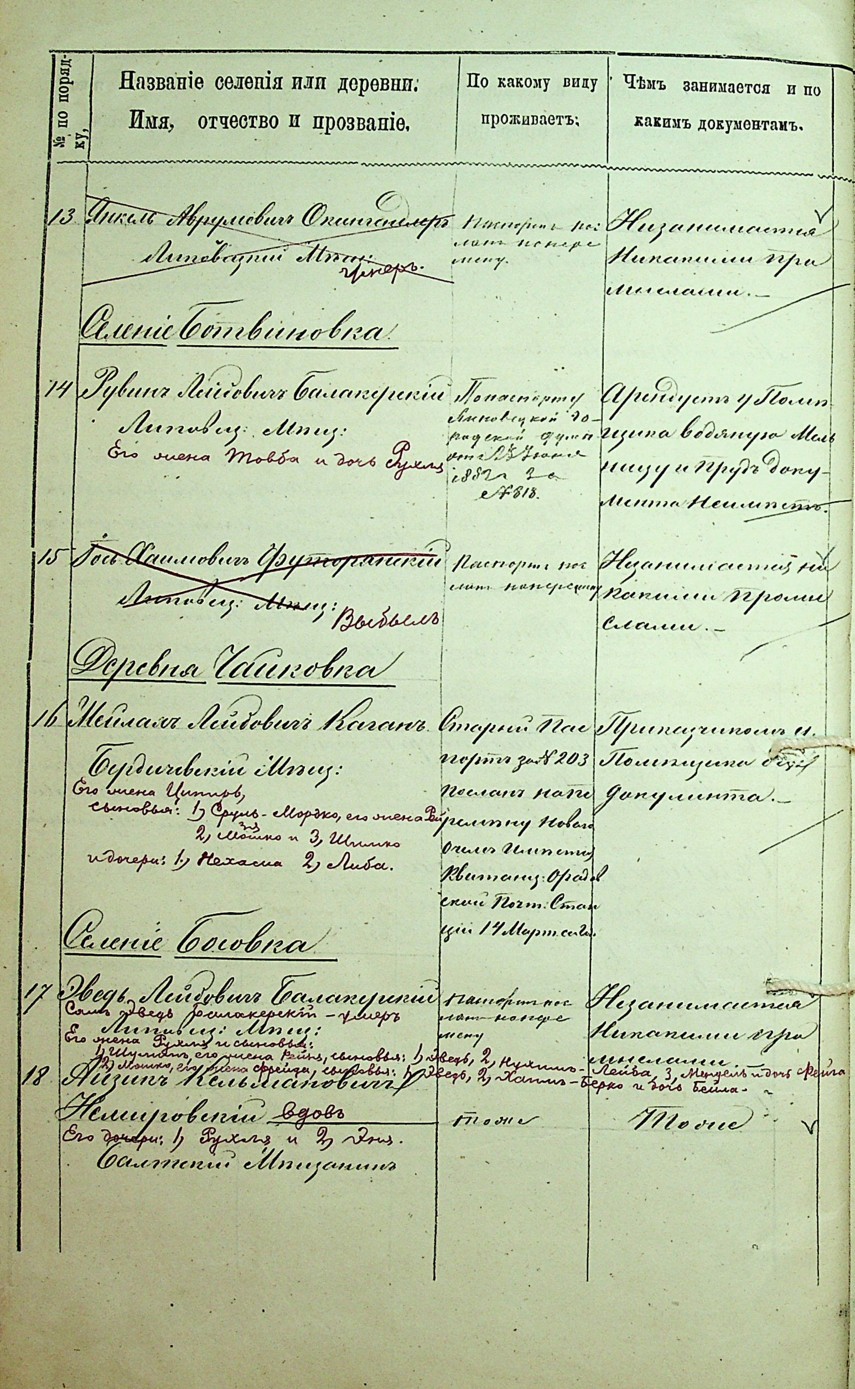 № по поряд-
ку,
Названіе селенія или деревни.
Имя, отчество и прозваніе.
По какому виду
проживаетъ.
Чѣмъ занимается и по
какимъ документамъ.
13 Янкель Аврумовичъ
Липовецкій Мѣщ:
умеръ.
Паспортъ пос
ланъ на пере
мену.
Незанимается
Никакими про
мыслами.
Селеніе Ботвиновка.
14 Рувинъ Лейбовичъ Балакерскій
Липовец: Мѣщ:
Его жена Товба и дочь Рухля
По паспорту
от
1882
№ 818.
Арендуетъ у Помѣ
щика водяную Мель
ницу и Прудъ доку-
мента Неимѣетъ.
15 Іось Хаимовичъ Футорянскій
Липовец: Мѣщ:
Выбылъ
Паспортъ пос
ланъ на перемену
Незанимается ни
какими Промы
слами.
Деревня Чайковка
16 Шейлахъ Лейбовичъ Каганъ
Бердичевскій Мѣщ:
Его жена Ципиръ,
сыновья: 1) Сруль-Мордко, его жена
2) Мошко и 3) Шимко
и дочери: 1) Нехама 2) Либа.
Старый Пас
портъ за № 203
Посланъ на пе
ремѣну Нового
о чемъ имѣетъ
Почт. Стан
цій 14 Март. с. г.
Приказчикомъ
Помѣщика безъ
документа.
Селеніе Босовка
17 Эведь Лейбовичъ Балакерскій
Самъ Эведь Балакерскій - умеръ
Липовец: Мѣщ:
Его жена Рухля и сыновья:
1) Шулимъ, его жена Кейла, сыновья: 1) Эведь, 2) Нухимъ-Лейба, 3) Мендель и дочь Фейга
2) Мошко, его жена Фрейда, сыновья: 1) Эведь, 2) Хаим-Берко и дочь Бейла.
Паспортъ пос
ланъ на пере
мену
Незанимается
Никакими про
мыслами.
18 Айзикъ Кельмановичъ
Немировскій вдовъ
Его дочери: 1) Рухля и 2) Эня.
Балтскій Мѣщанинъ
тоже
Тоже